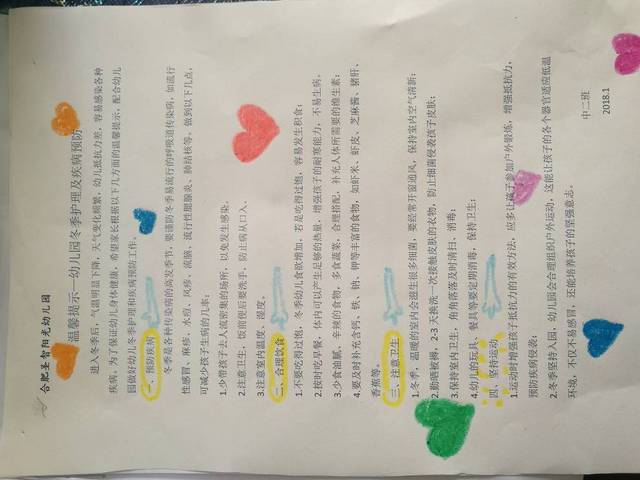 合肥圣智阳光幼儿园
温馨提示—幼儿园冬季护理及疾病预防
进入冬季后，气温明显下降，天气变化频繁，幼儿抵抗力差，容易感染各种
疾病，为了保证幼儿身体健康，希望家长根据以下几方面的温馨提示，配合幼儿
园做好幼儿冬季护理和疾病预防工作。
一、预防疾病
冬季是各种传染病的高发季节，要谨防冬季易流行的呼吸道传染病，如流行
性感冒、麻疹、水痘、风疹、流脑、流行性腮腺炎、肺结核等，做到以下几点，
可减少孩子生病的几率：
1.少带孩子去人流密集的场所，以免发生感染。
2.注意卫生，饭前便后要洗手，防止病从口入。
3.注意室内温度、湿度。
二、合理饮食
1.不要吃得过饱，冬季幼儿食欲增加，若是吃得过饱，容易发生积食；
2.按时吃早餐，体内可以产生足够的热量，增强孩子的耐寒能力，不易生病。
3.少食油腻、辛辣的食物，多食蔬菜，合理搭配，补充人体所需要的维生素；
4.要及时补充含钙、铁、钠、钾等丰富的食物，如虾米、虾皮、芝麻酱、猪肝、
香蕉等。
三、注意卫生
1.冬季，温暖的室内会滋生很多细菌，要经常开窗通风，保持室内空气清新；
2.勤晒被褥，2-3 天换洗一次接触皮肤的衣物，防止细菌侵袭孩子皮肤；
3.保持室内卫生，角角落落及时清扫、消毒；
4.幼儿的玩具、餐具等要定期消毒，保持卫生；
四、坚持运动
1.运动时增强孩子抵抗力的有效方法，应多让孩子参加户外锻炼，增强抵抗力，
预防疾病侵袭；
2.冬季坚持入园，幼儿园会合理组织户外运动，这能让孩子的各个器官适应低温
环境，不仅不易感冒，还能培养孩子的坚强意志。
中二班
2018.1